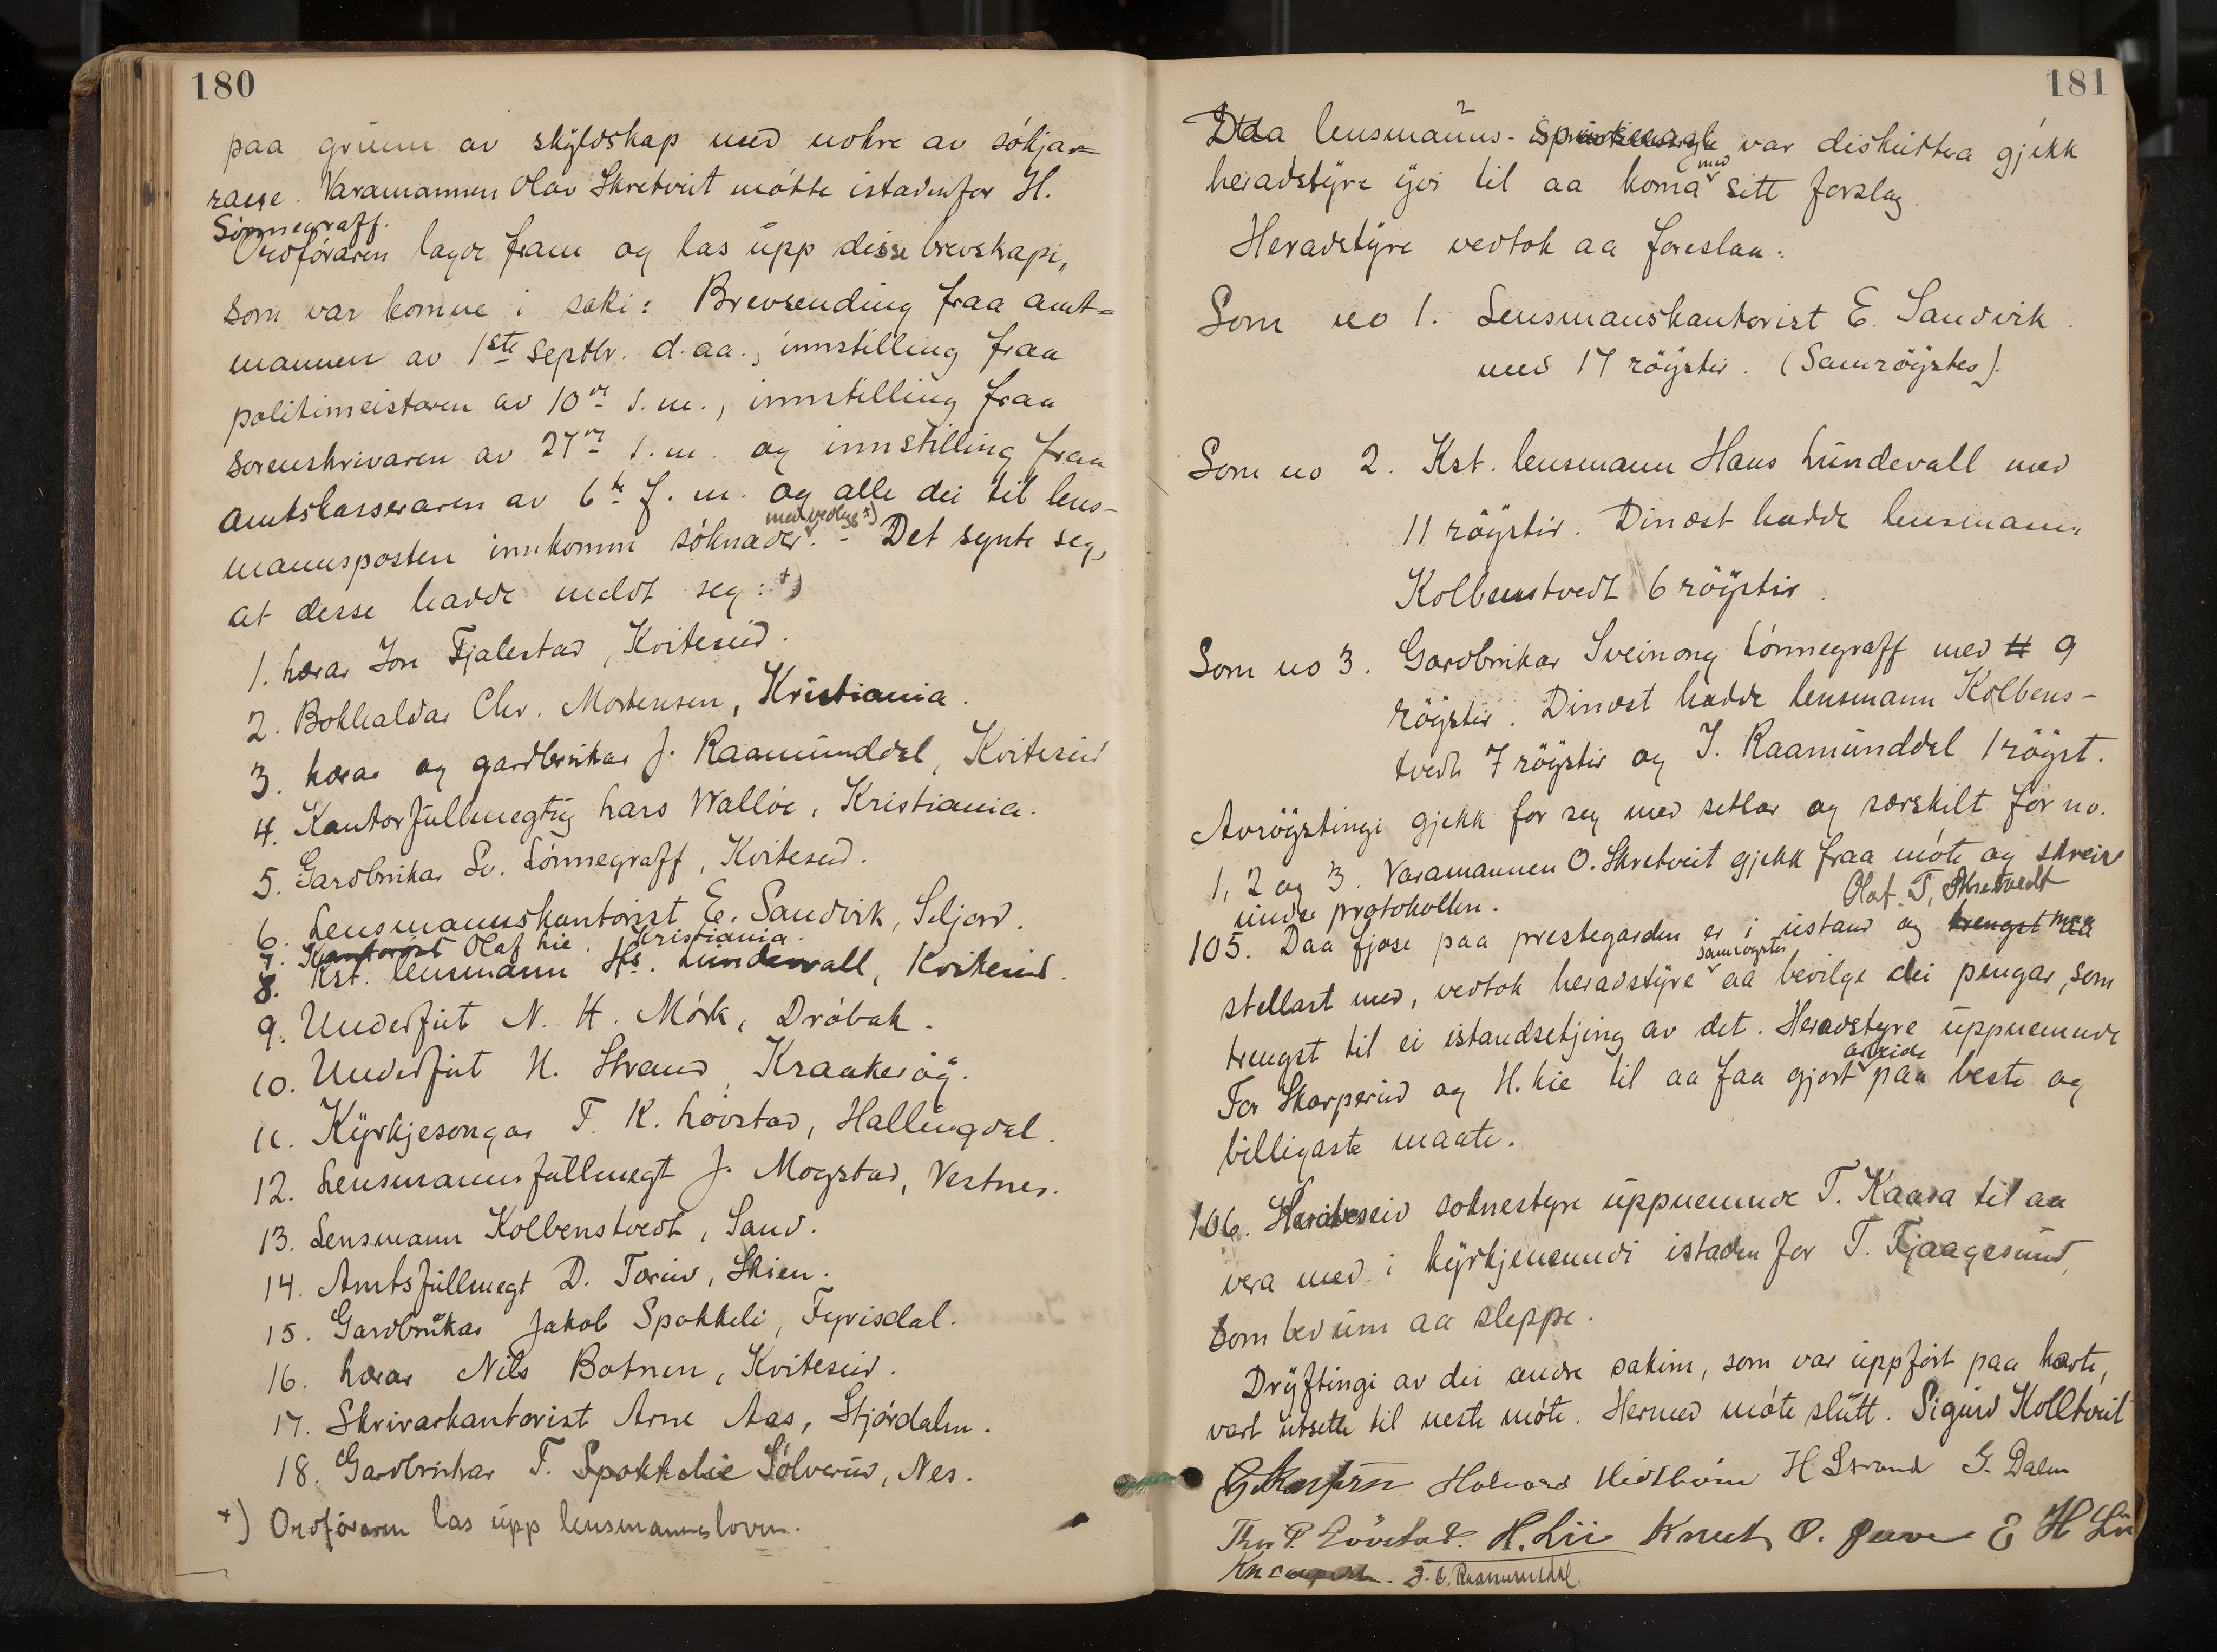 180
paa grunn av skyldskap med nokre av sökjar-
raene. Varamannen Olav Skretveit mötte istadenfor H.
Lönnegraff.
Ordföraren lagde fram og las upp disse brevskapi,
som var komne i saki: Brevsending fraa amt-
mannen av 1ste septbr. d. aa., innstilling fraa
politimeistaren av 10de s. m., innstilling fraa
sorenskrivaren av 27de s. m. og innstilling fraa
amtskasseraren av 6te f. m. og alle dei til lens-
med vedlegg x)
mannsposten innkomne söknader. - Det synte seg,
at desse hadde meldt seg: x)
1. Lærar Jon Fjalestad, Kviteseid.
2. Bokhaldar Chr. Mortensen, Kristiania.
3. Lærar og gardbrukar J. Raamunddal, Kviteseid
4. Kontorfullmegtig Lars Wallöe, Kristiania.
5. Gardbrukar Sv. Lönnegraff, Kviteseid.
6. Lensmannskontorist E. Sandvik, Seljord.
7. Kontorist Olaf Lie, Kristiania.
8. Kst. lensmann Hs. Lundevall, Kviteseid.
9. Underfut N. H. Mörk, Dröbak.
10. Underfut N. Strand, Kraakeröy.
11. Kyrkjesongar T. K. Lövstad, Hallingdal.
12. Lensmannsfullmegt J. Mogstad, Vestnes.
13. Lensmann Kolbenstvedt, Sand.
14. Amtsfullmegt D. Torud, Skien.
15. Gardbrukar Jakob Spokkeli, Fyrisdal.
16. Lærar Nils Botnen, Kviteseid.
17. Skrivarkontorist Arne Aas, Stjördalen.
18. Gardbrukar T. Spokkelie Sölverud, Nes.
x) Ordföraren las upp lensmannsloven.
181
Daa lensmanns- var diskuttera gjekk
med
heradstyre yvi til aa koma sitt forslag
Heradstyre vedtok aa foreslaa:
Som no 1. Lensmanskontorist E. Sandvik
med 17 röyster. (Samröystes).
Som no 2. Kst. lensmann Hans Lundevall med
11 röyster. Dinæst hadde lensmann
Kolbenstvedt 6 röyster.
Som no 3. Gardbrukar Sveinong Lönnegraff med 9
röyster. Dinæst hadde lensmann Kolbens-
tvedt 7 röyster og J. Raamunddal 1 röyst.
Avröystingi gjekk for seg med setlar og særskilt for no.
1, 2 og 3. Varamannen O. Skretveit gjekk fraa möte og skreiv
unde protokollen. Olaf T. Skretvedt
105. Daa fjose paa prestegarden er i ustand og trengst maa
samröystes
stellast med, vedtok heradstyre aa bevilge dei pengar, som
trengst til ei istandsetjing av det. Heradstyre uppnemnde
arbeide
For Skarperud og H. Lie til aa faa gjort paa beste og
billigaste maate.
106. Kviteseid soknestyre uppnemnde T. Kaasa til aa
vera med i kyrkjenemndi istaden for T. Fjaagesund,
som bed um aa sleppe.
Dryftingi av dei andre sakine, som var uppfört paa karte,
vart utsette til neste möte. Hermed möte slutt. Sigurd Kolltveit
Halvard H Strand G. Dalen
Lövstad. H. Lii Knut O. E H Lii
Raamunddal.